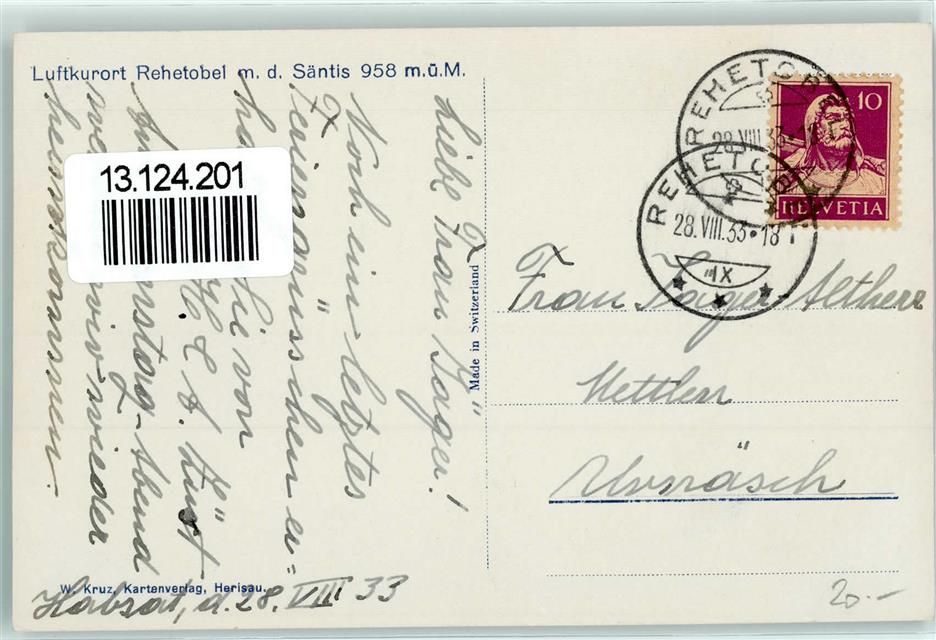 Luftkurort Rehetobel m. d. Säntis 958 m.ü.M.
13.124.201
Liebe Frau Jager!
Noch ein letztes
Feriengrüsschen er=
Sie von
H & A. Künst
Samstag-Abend
wir wieder
heimkommen.
Made in Switzerland
REHETOBEL
28.VIII.33
REHETOBEL
28.VIII.33•18
IX
10
HELVETIA
Frau Jager-Altherr
Mettlen
Urnäsch
W. Kruz, Kartenverlag, Herisau.
Habsat, d. 28. VIII 33
20.--